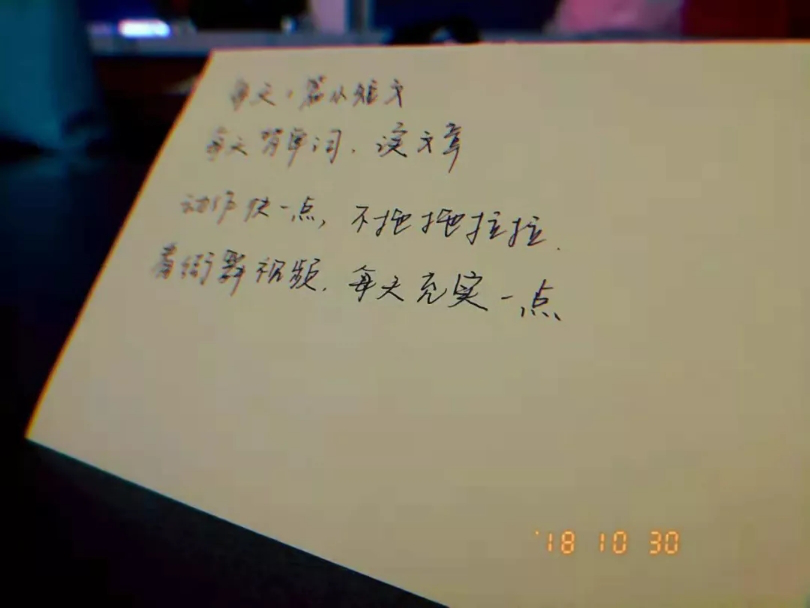 每天一篇小短文
每天背单词、读文章
动作快一点，不拖拖拉拉.
看衔野视频.每天充实一点
'18 10 30